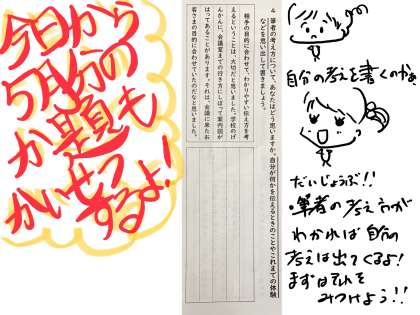 今日から
5月分の
か題も
かいせつ
するよ!
4 筆者の考え方について、あなたはどう思いますか。自分が何かを伝えるときのことやこれまでの体験
などを思い出して書きましょう。
相手の目的に合わせて、わかりやすい伝え方を考
えるということは、大切だと思いました。学校のげ
んかんに、会議室までの行き方にしぼって案内図が
はってあることがあります。それは、会議に来たお
客さまの目的に合わせていたのだなと思いました。
自分の考えを書くのね。
だいじょうぶ!!
・筆者の考え方が
わかれば自分の
考えは出てくるよ!
まずはそれを
みつけよう!!